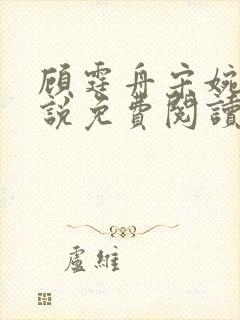 顧霆舟宋婉
說免費閱讀
盧維